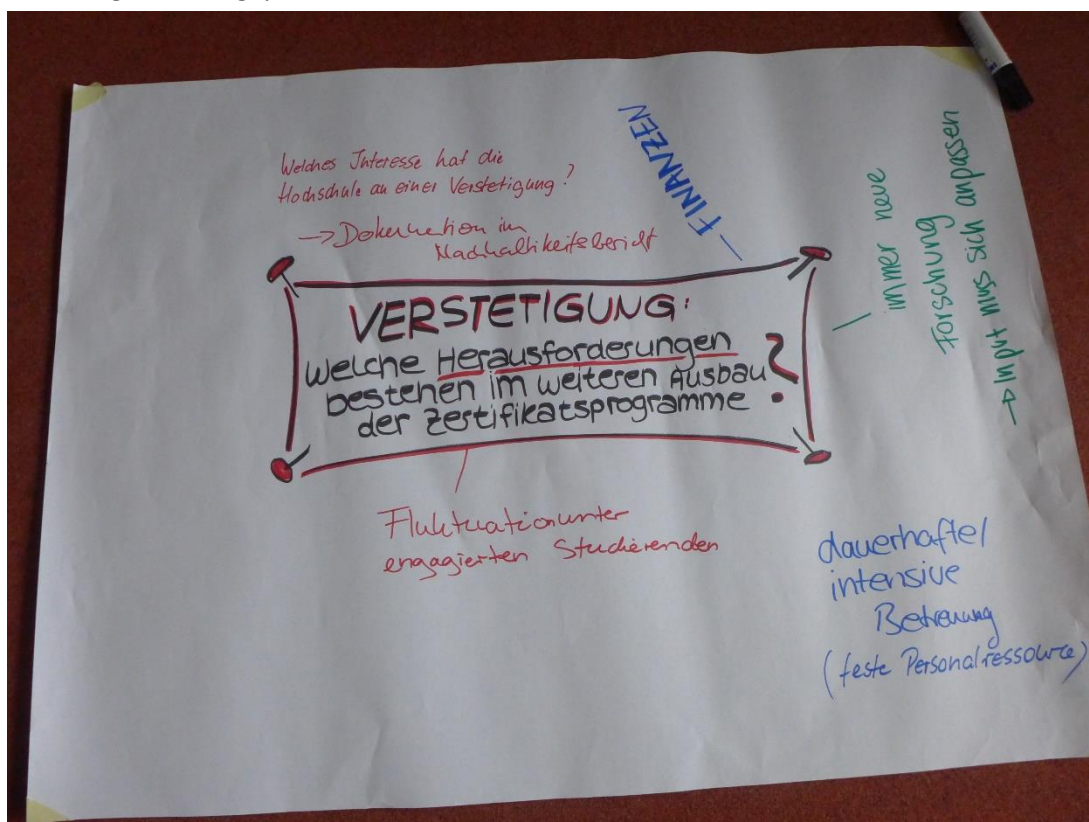 Welches Interesse hat die
Hochschule an einer Verstetigung?
FINANZEN
immer neue
Forschung
→ Input muss sich anpassen
VERSTETIGUNG:
Welche Herausforderungen
bestehen im weiteren Ausbau
der Zertifikatsprogramme?
Fluktuation unter
engagierten Studierenden
dauerhafte/
intensive
Betreuung
(feste Personalressource)